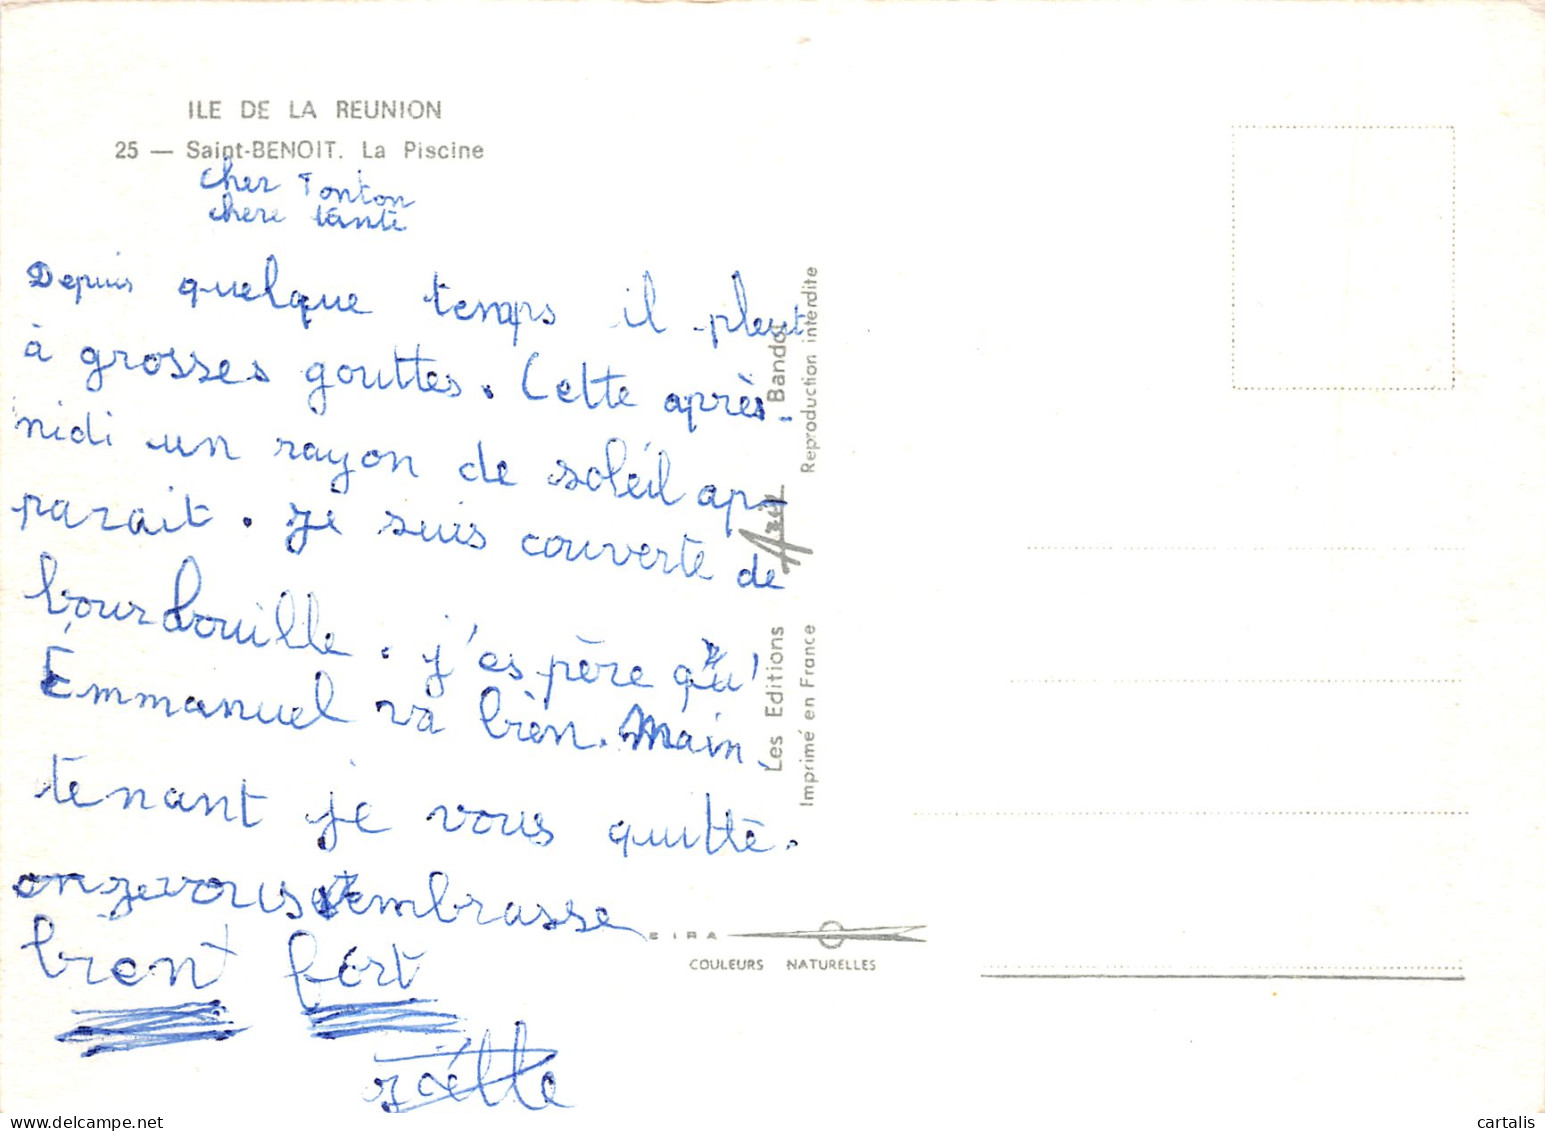 ILE DE LA REUNION
25 — Saint-BENOIT. La Piscine
cher Tonton
chere tante
Depuis quelque temps il pleut
à grosses gouttes. Cette après-
nidi un rayon de soléil ap-
parait. je suis couverte de
bourbouille. j'es père qu'
Émmanuel va bièn. Main-
tenant je vous quitte.
je vous embrasse
bient fort
Les Editions Bandol
Imprimé en France Reproduction interdite
COULEURS NATURELLES
cartalis